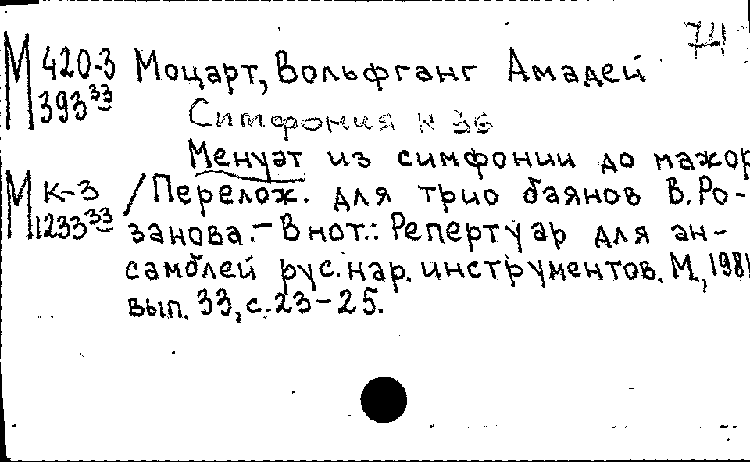 74
М 420-3 Моцарт, Вольфганг Амадей
393 33
Симфония № 36
Менуэт из симфонии до мажор
М К-3 /Перелож. для трио баянов В. Ро-
1233 33 занова. – В нот.: Репертуар для ан-
самблей рус. нар. инструментов. М., 1981
вып. 33, с. 23-25.